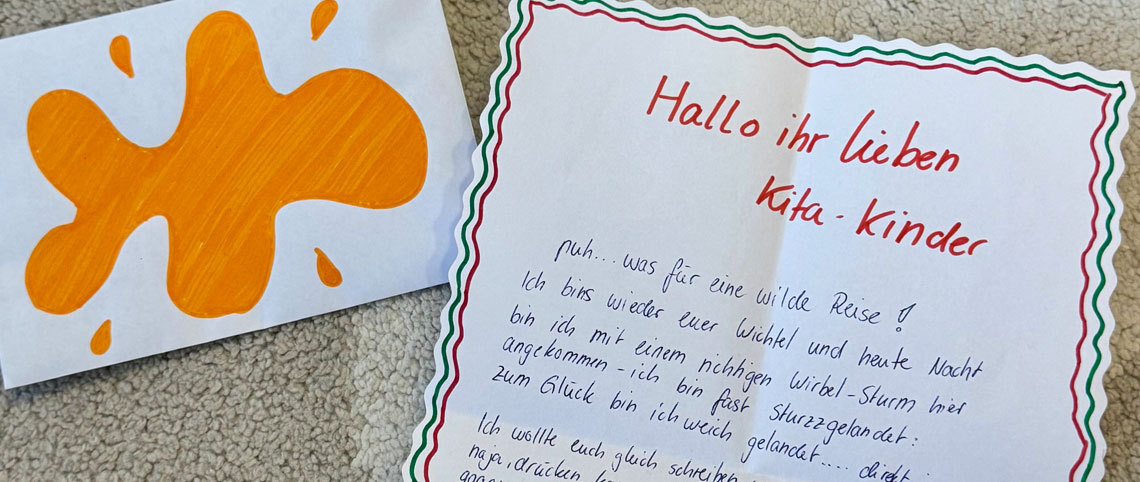 Hallo ihr lieben
Kita-Kinder
puh... was für eine wilde Reise!
Ich bins wieder euer Wichtel und heute Nacht
bin ich mit einem richtigen Wirbel-Sturm hier
angekommen - ich bin fast sturzzgelandet:
zum Glück bin ich weich gelandet.... direkt
Ich wollte euch gleich schreiben
naja, drücken